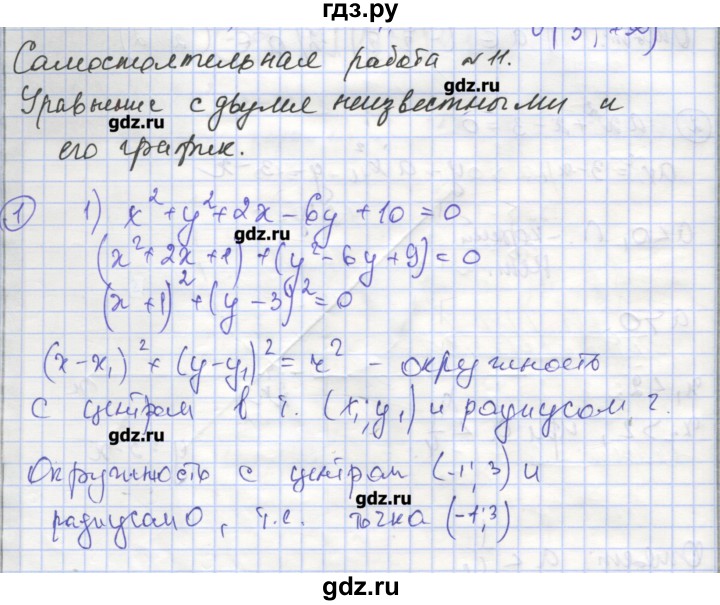 гдз.ру
Самостоятельная работа №11.
gdz.ru
Уравнение с двумя неизвестными и
gdz.ru
gdz.ru
его график.
① 1) x² + y² + 2x - 6y + 10 = 0
gdz.ru
(x² + 2x + 1) + (y² - 6y + 9) = 0
(x + 1)² + (y - 3)² = 0
(x - x₁)² + (y - y₁)² = r² - окружность
с центром в т. (x₁; y₁) и радиусом r.
gdz.ru
Окружность с центром (-1; 3) и
gdz.ru
радиусом 0, т.е. точка (-1; 3)
gdz.ru